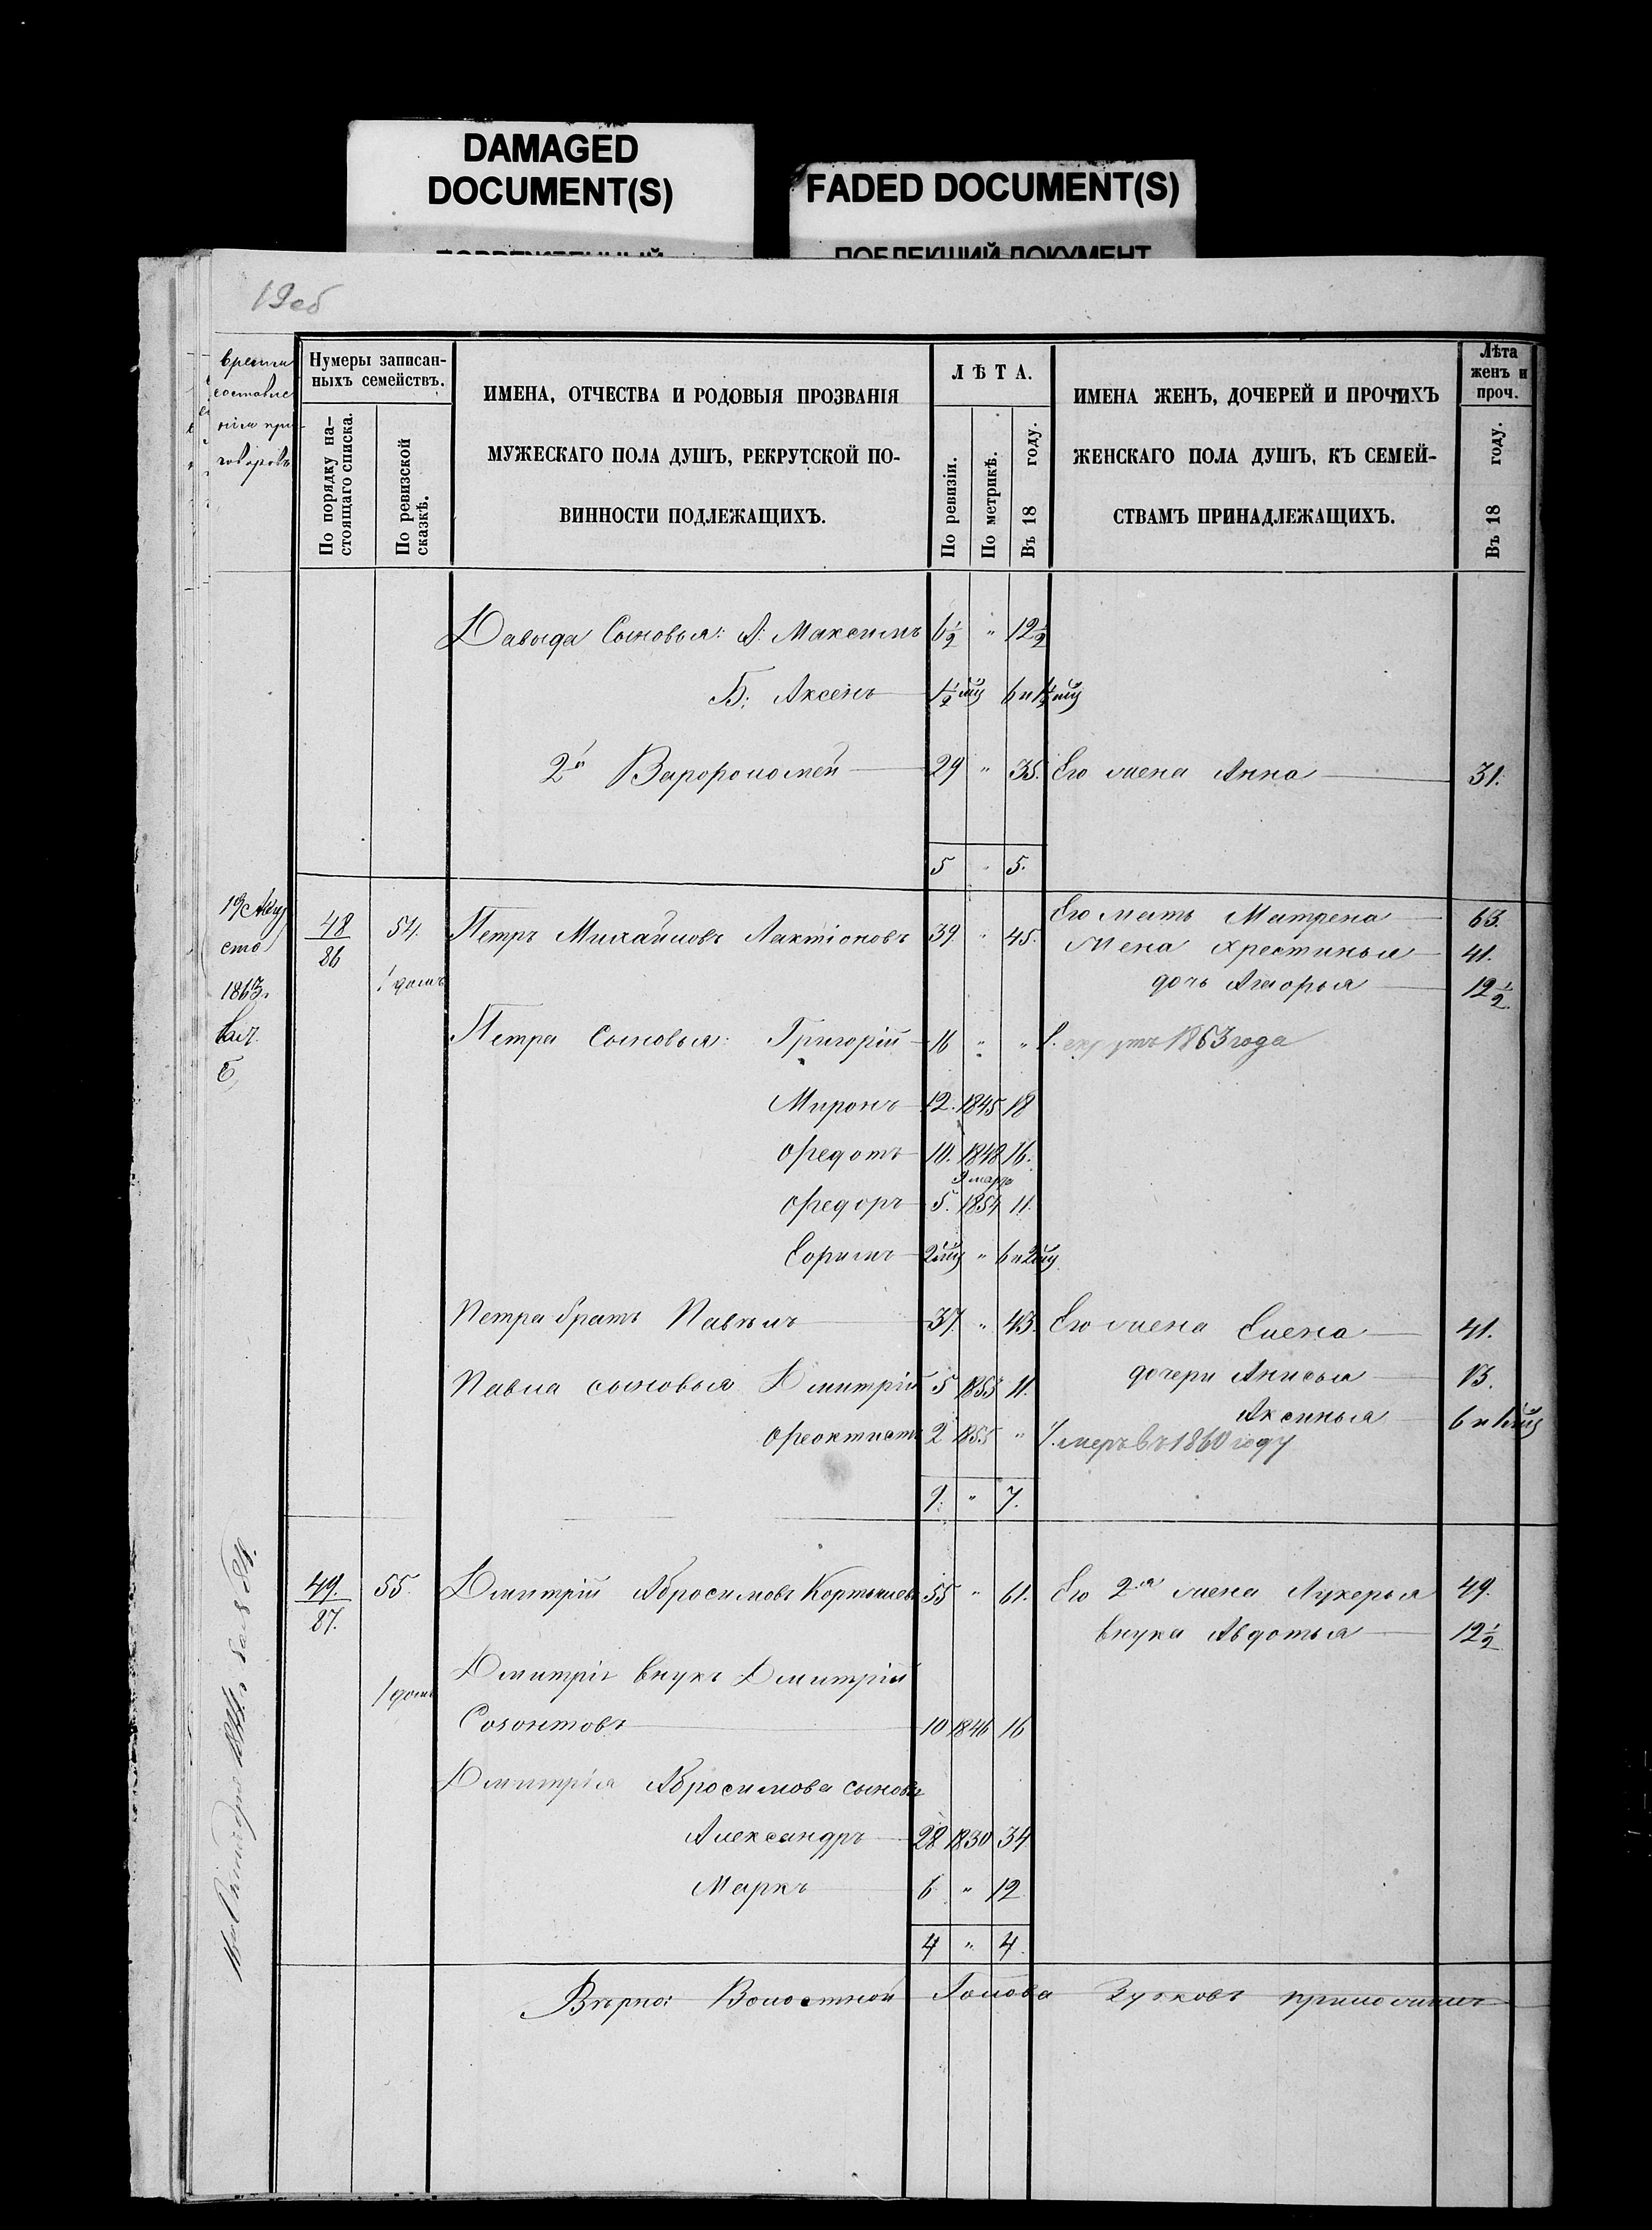 DAMAGED
DOCUMENT(S)
FADED DOCUMENT(S)
ПОБЛЕКШИЙ ДОКУМЕНТ
19об
Время
составле
нія при-
говоровъ
Нумеры записан-
ныхъ семействъ.
По порядку на-
стоящаго списка.
По ревизской
сказкѣ.
ИМЕНА, ОТЧЕСТВА И РОДОВЫЯ ПРОЗВАНІЯ
МУЖЕСКАГО ПОЛА ДУШЪ, РЕКРУТСКОЙ ПО-
ВИННОСТИ ПОДЛЕЖАЩИХЪ.
ЛѢТА.
По ревизіи.
По метрикѣ.
Въ 18 году.
ИМЕНА ЖЕНЪ, ДОЧЕРЕЙ И ПРОЧИХЪ
ЖЕНСКАГО ПОЛА ДУШЪ, КЪ СЕМЕЙ-
СТВАМЪ ПРИНАДЛЕЖАЩИХЪ.
Лѣта
женъ и
проч.
Въ 18 году.
Давыда Сыновья: А: Максимъ 6½ " 12½
Б: Аксенъ 1½ мц 6 и 1½ мц
2й Варфоломей 29 " 35. Его жена Анна 31.
5 " 5.
19 Авгу
ста
1863.
48/86 54. Петръ Михайловъ Лактіоновъ 39. " 45. Его мать Матрена 63.
Жена Хрестинья 41.
1 домъ дочь Агафья 12½
Петра Сыновья: Григорій 16 " " Рекрутъ 1863 года
Миронъ 12. 1845 18
Федотъ 10. 1848 16.
9 марта
Федоръ 5. 1854 11.
Ефимъ 2 мц " 6 и 2 мц
Петра братъ Павелъ 37. " 43. Его жена Елена 41.
Павла сыновья Дмитрій 5 1853 11. дочери Анисья 13.
Аксинья
Феоктистъ 2 1855 " Умеръ въ 1860 году
9. " 7.
49./87. 55. Дмитрій Абросимовъ 55 " 61. Его 2я жена Лукерья 49.
внука Авдотья 12½
Дмитрія внукъ Дмитрій
1 домъ
Созонтовъ 10 1846 16
Дмитрія Абросимова сыновья
Александръ 28 1830 34
Маркъ 6 " 12
4 " 4.
Вѣрно: Волостной Голова Зубковъ приложилъ